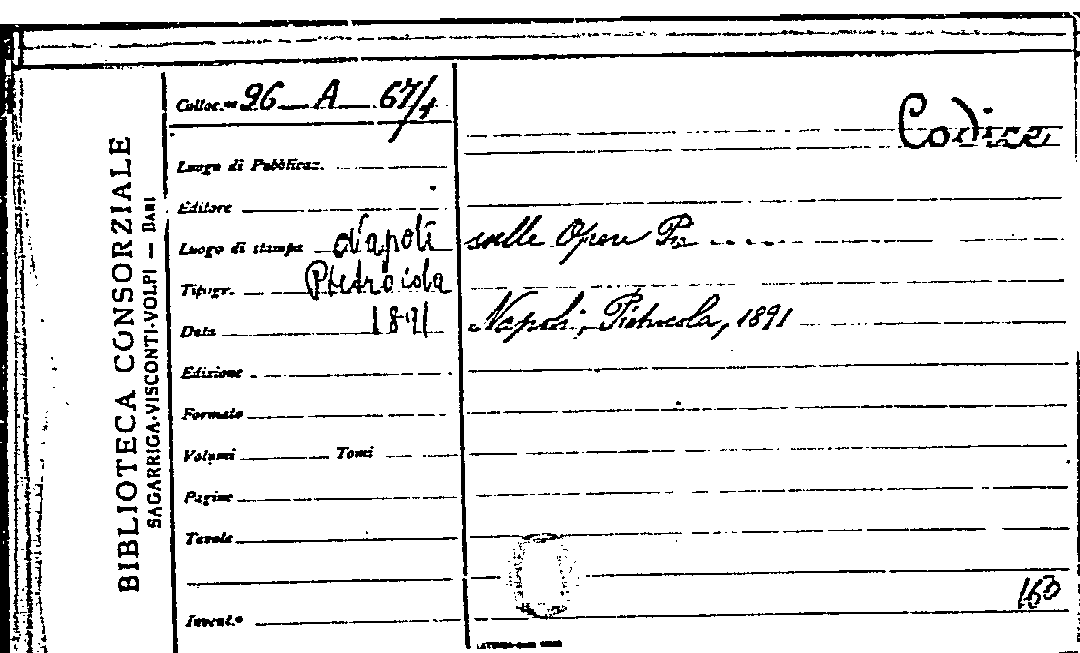 BIBLIOTECA CONSORZIALE
SAGARRIGA-VISCONTI-VOLPI — BARI
Colloc.ne 96 A 67/1
Luogo di Pubblicaz.
Editore
Luogo di stampa Napoli
Tipogr. Pietrocola
Data 1891
Edizione
Formato
Volumi Tomi
Pagine
Tavole
Invent.º
Codice
sulle Opere Pie ....
Napoli, Pietrocola, 1891
160